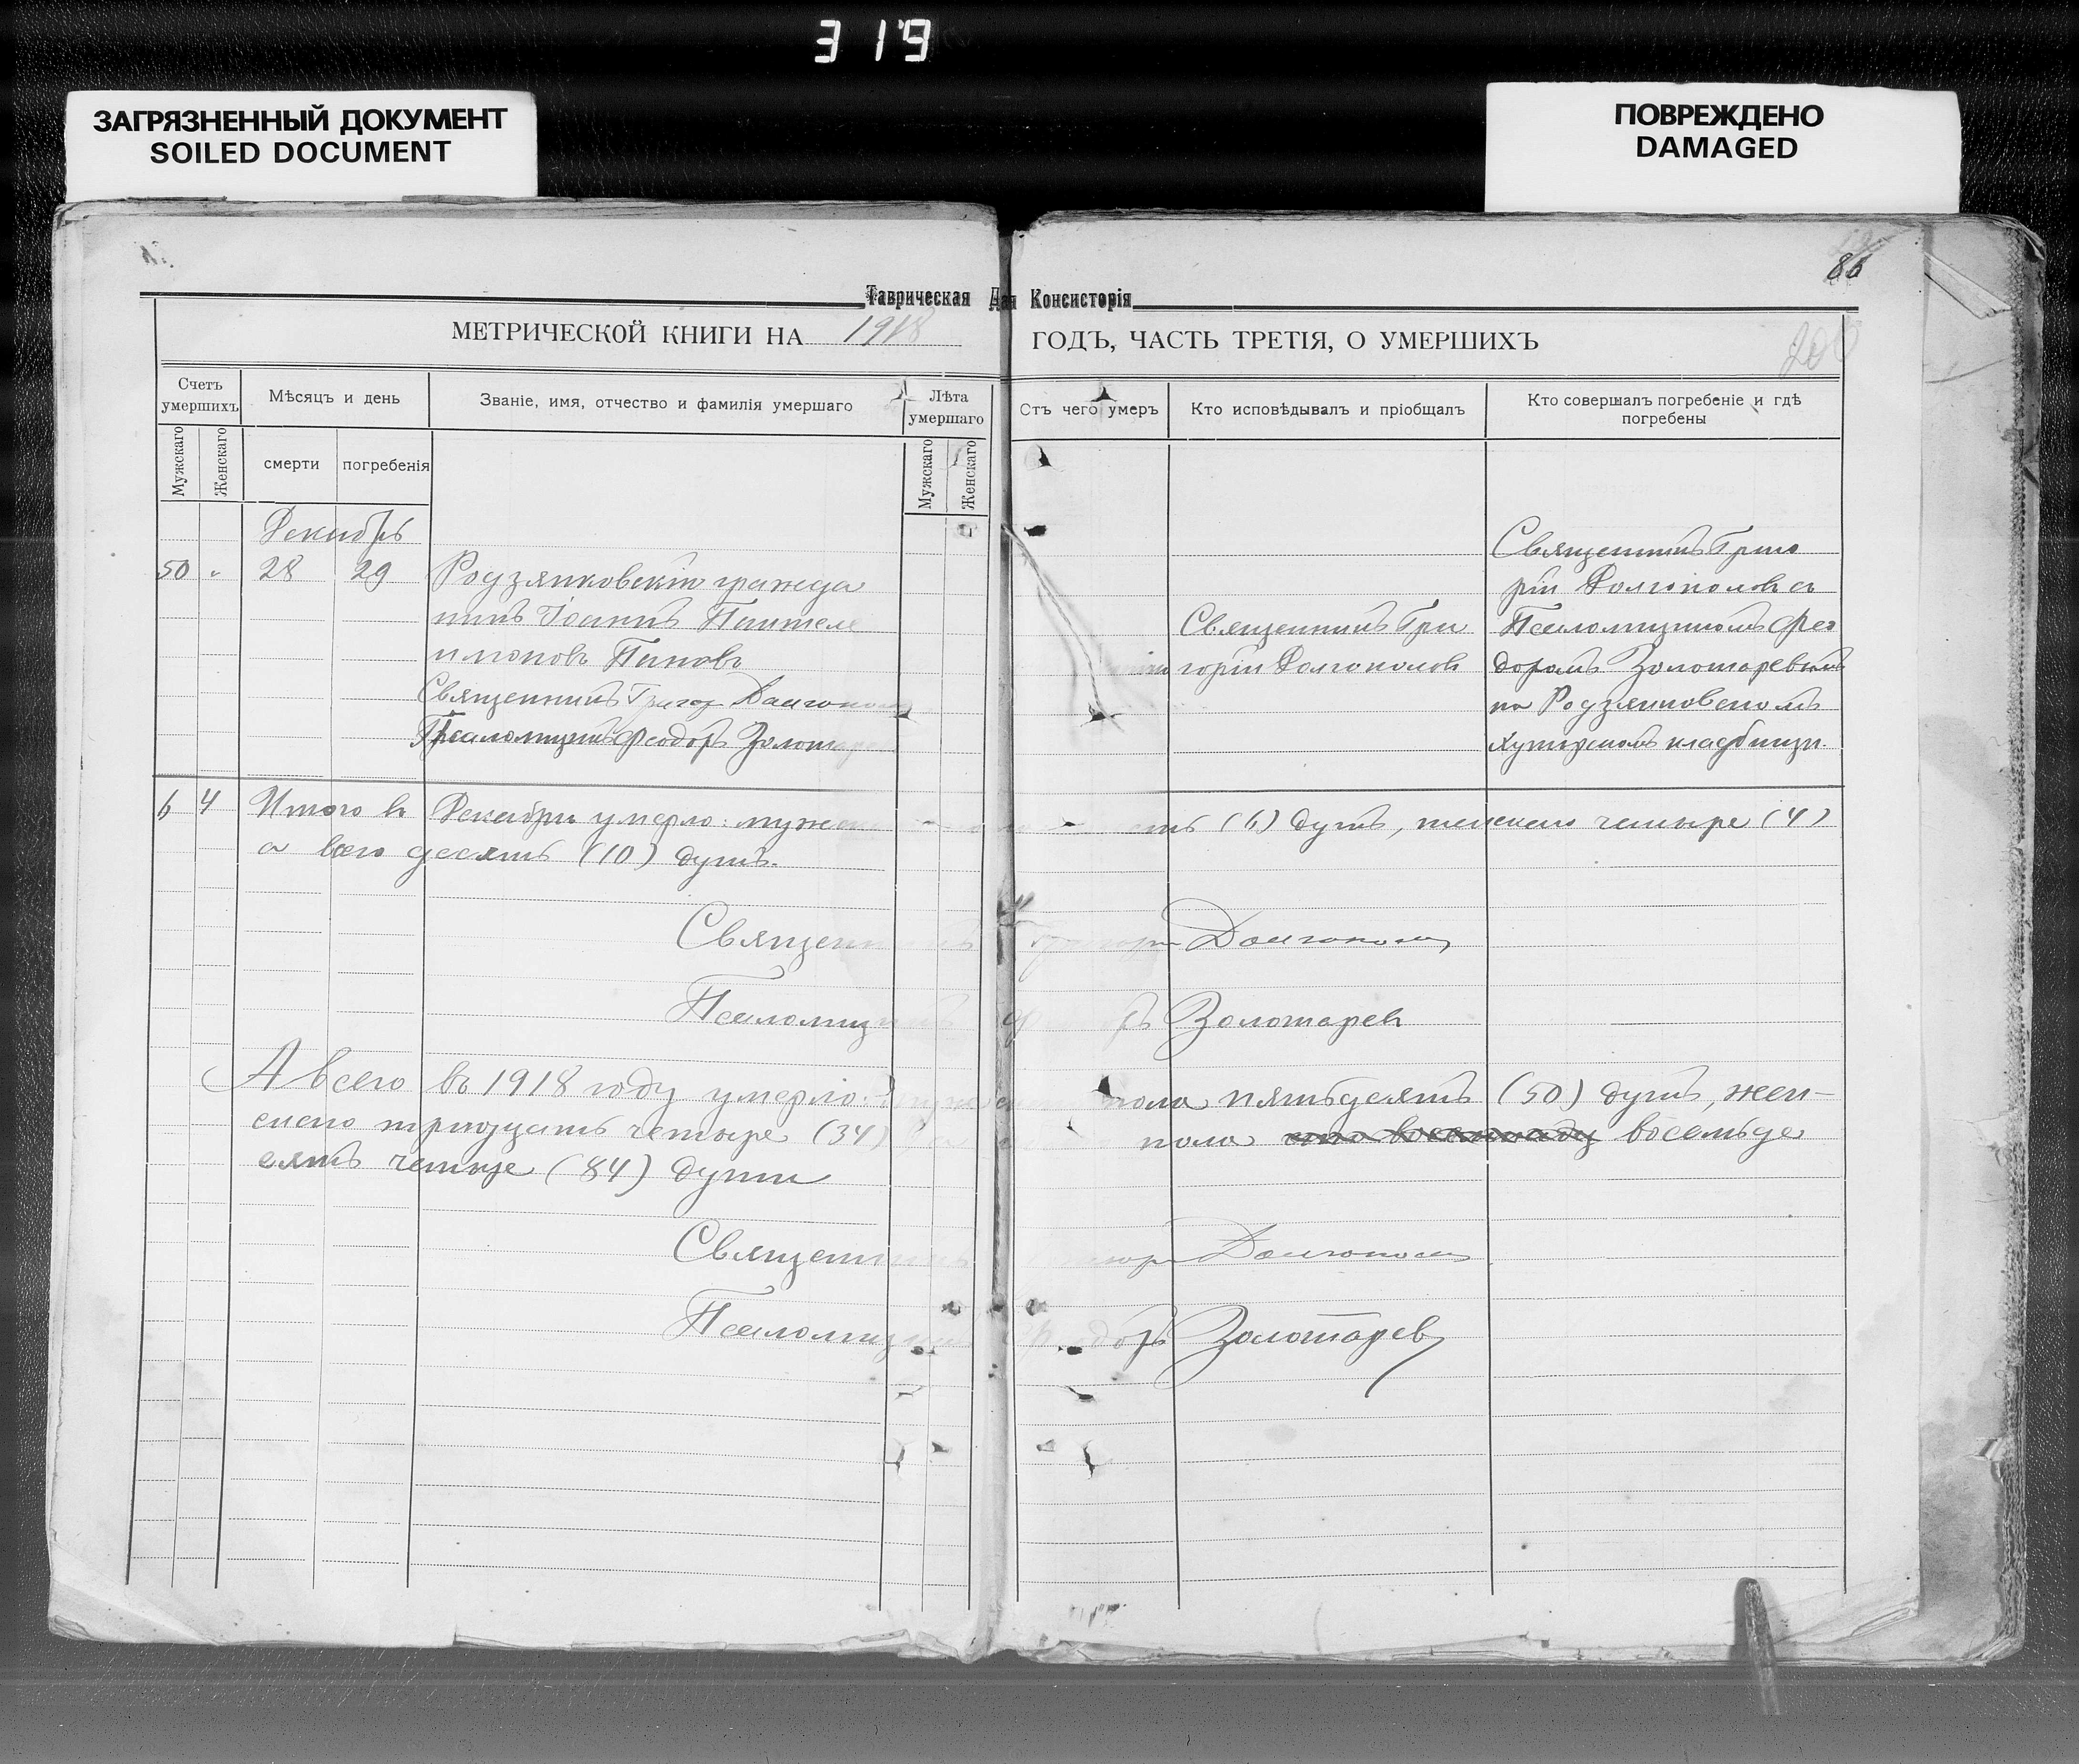 319
ЗАГРЯЗНЕННЫЙ ДОКУМЕНТ
SOILED DOCUMENT
ПОВРЕЖДЕНО
DAMAGED
86
Таврическая Консисторія
МЕТРИЧЕСКОЙ КНИГИ НА 1918 ГОДЪ, ЧАСТЬ ТРЕТІЯ, О УМЕРШИХЪ
Счетъ умершихъ
Мужскаго
Женскаго
Мѣсяцъ и день
смерти
погребенія
Званіе, имя, отчество и фамилія умершаго
Лѣта умершаго
Мужскаго
Женскаго
Отъ чего умеръ
Кто исповѣдывалъ и пріобщалъ
Кто совершалъ погребеніе и гдѣ
погребены
Декабрь
50 " 28 29 Родзянковскій гражда
нинъ Іоаннъ Пантеле
имоновъ Пановъ
Священникъ Григор Долгопол
Псаломщикъ Феодоръ Золотарев
Священникъ Гри
горій Долгополов
Священникъ Григо
рій Долгополов съ
Псаломщикомъ Фео
доромъ Золотаревымъ
на Родзянковскомъ
хуторскомъ кладбищѣ.
6 4 Итого въ Декабрѣ умерло: мужск (6) душъ, женскаго четыре (4)
а всего десять (10) душъ.
Священ Долгополов
Псаломщ Золотарев
А всего въ 1918 году умерло: пола пятьдесятъ (50) душъ, жен-
скаго тридцать четыре (34) пола восемьде
сятъ четыре (84) души
Священ Долгополов
Псаломщик Феодоръ Золотарев